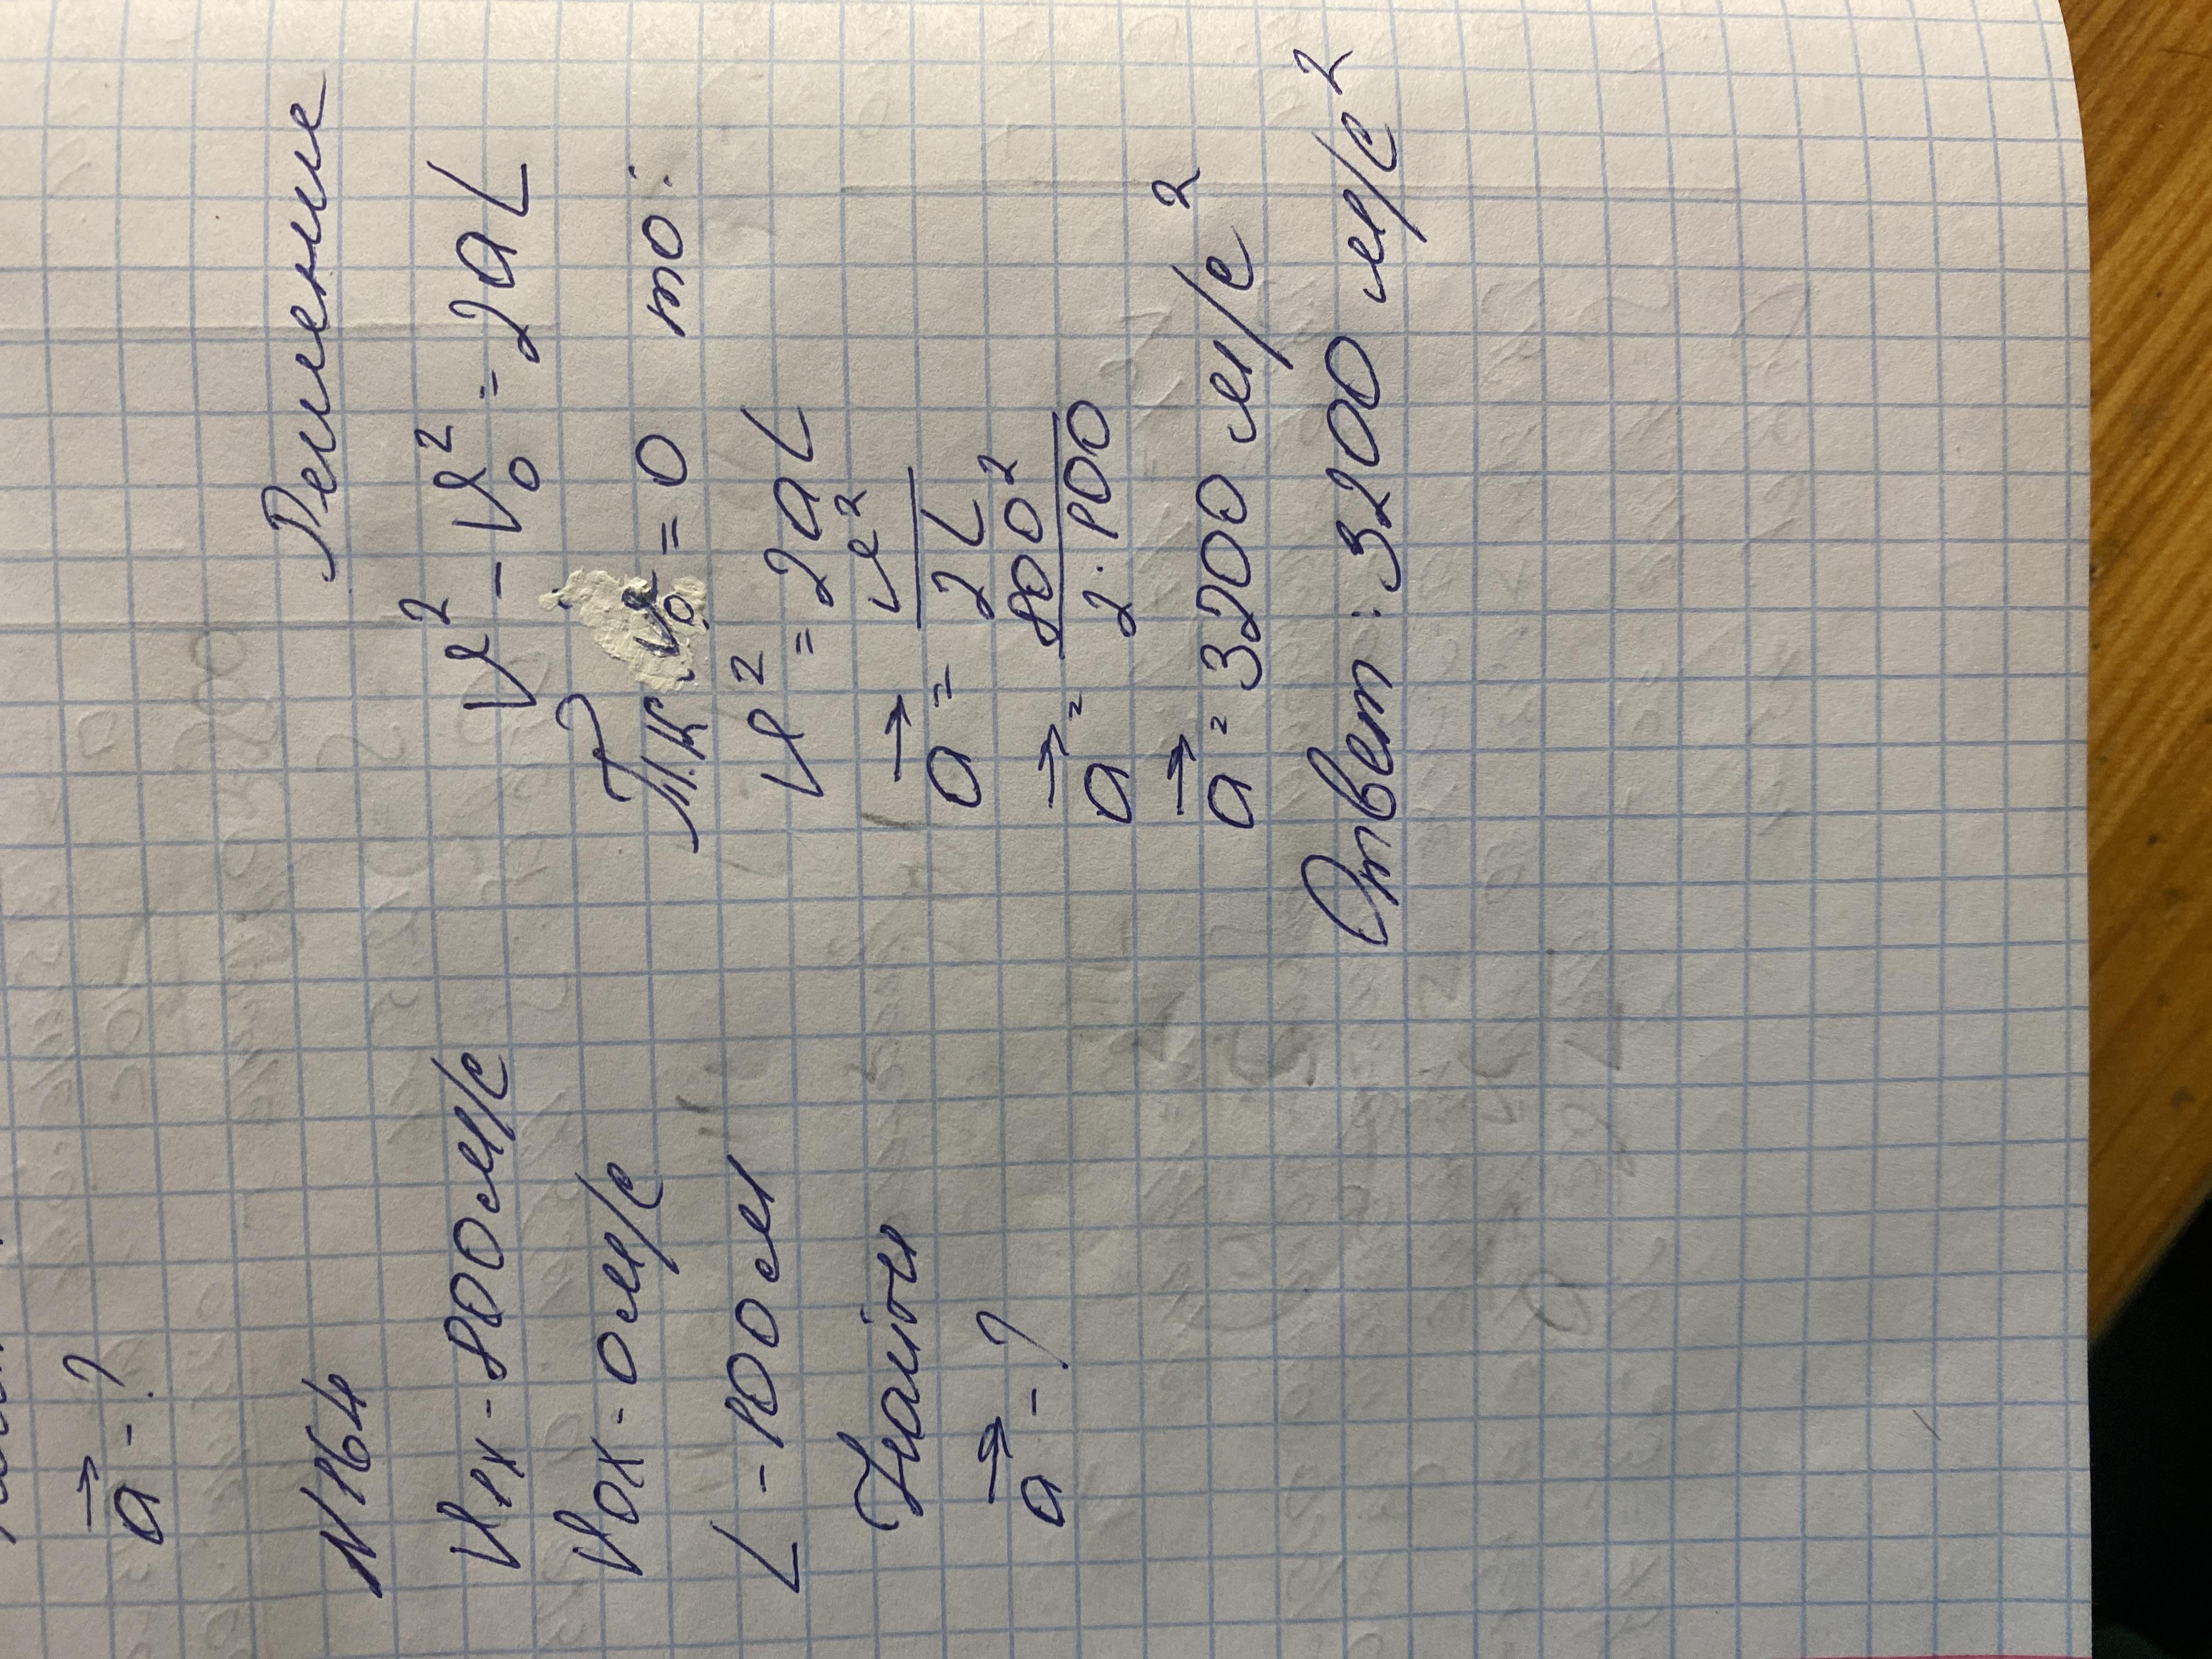 a⃗ - ?
N 164
Vx - 800 м/с
Vox - 0 м/с
L - 100 м
Найти
a⃗ - ?
Решение
V² - V₀² = 2aL
Т.к. V₀ = 0 то:
V² = 2aL
a⃗ = V² / 2L
a⃗ = 800² / 2 · 100
a⃗ = 3200 м/с²
Ответ: 3200 м/с²